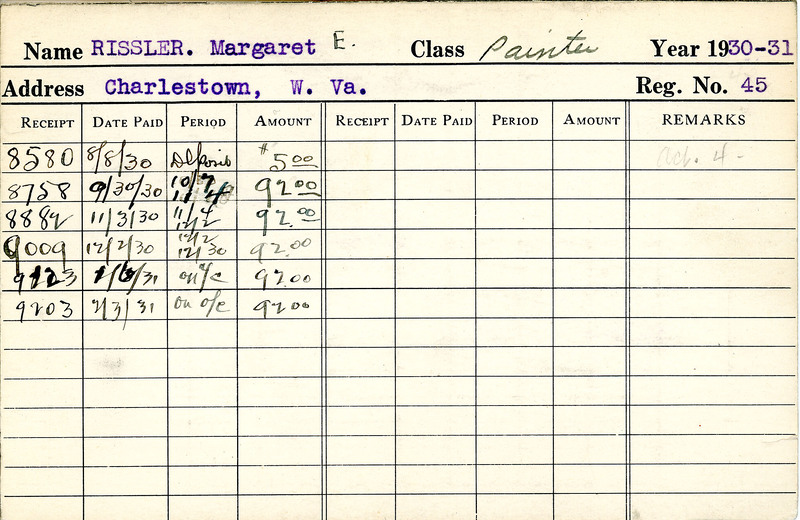 Name RISSLER. Margaret E. Class Painter Year 1930-31
Address Charlestown, W. Va. Reg. No. 45
RECEIPT DATE PAID PERIOD AMOUNT RECEIPT DATE PAID PERIOD AMOUNT REMARKS
8580 8/8/30 Deposit $5.00 Oct. 4-
8758 9/30/30 10/7 11/4 92.00
8882 11/3/30 11/4 12/2 92.00
9009 12/2/30 12/2 12/30 92.00
9123 1/6/31 on a/c 92.00
9203 2/3/31 on a/c 92.00